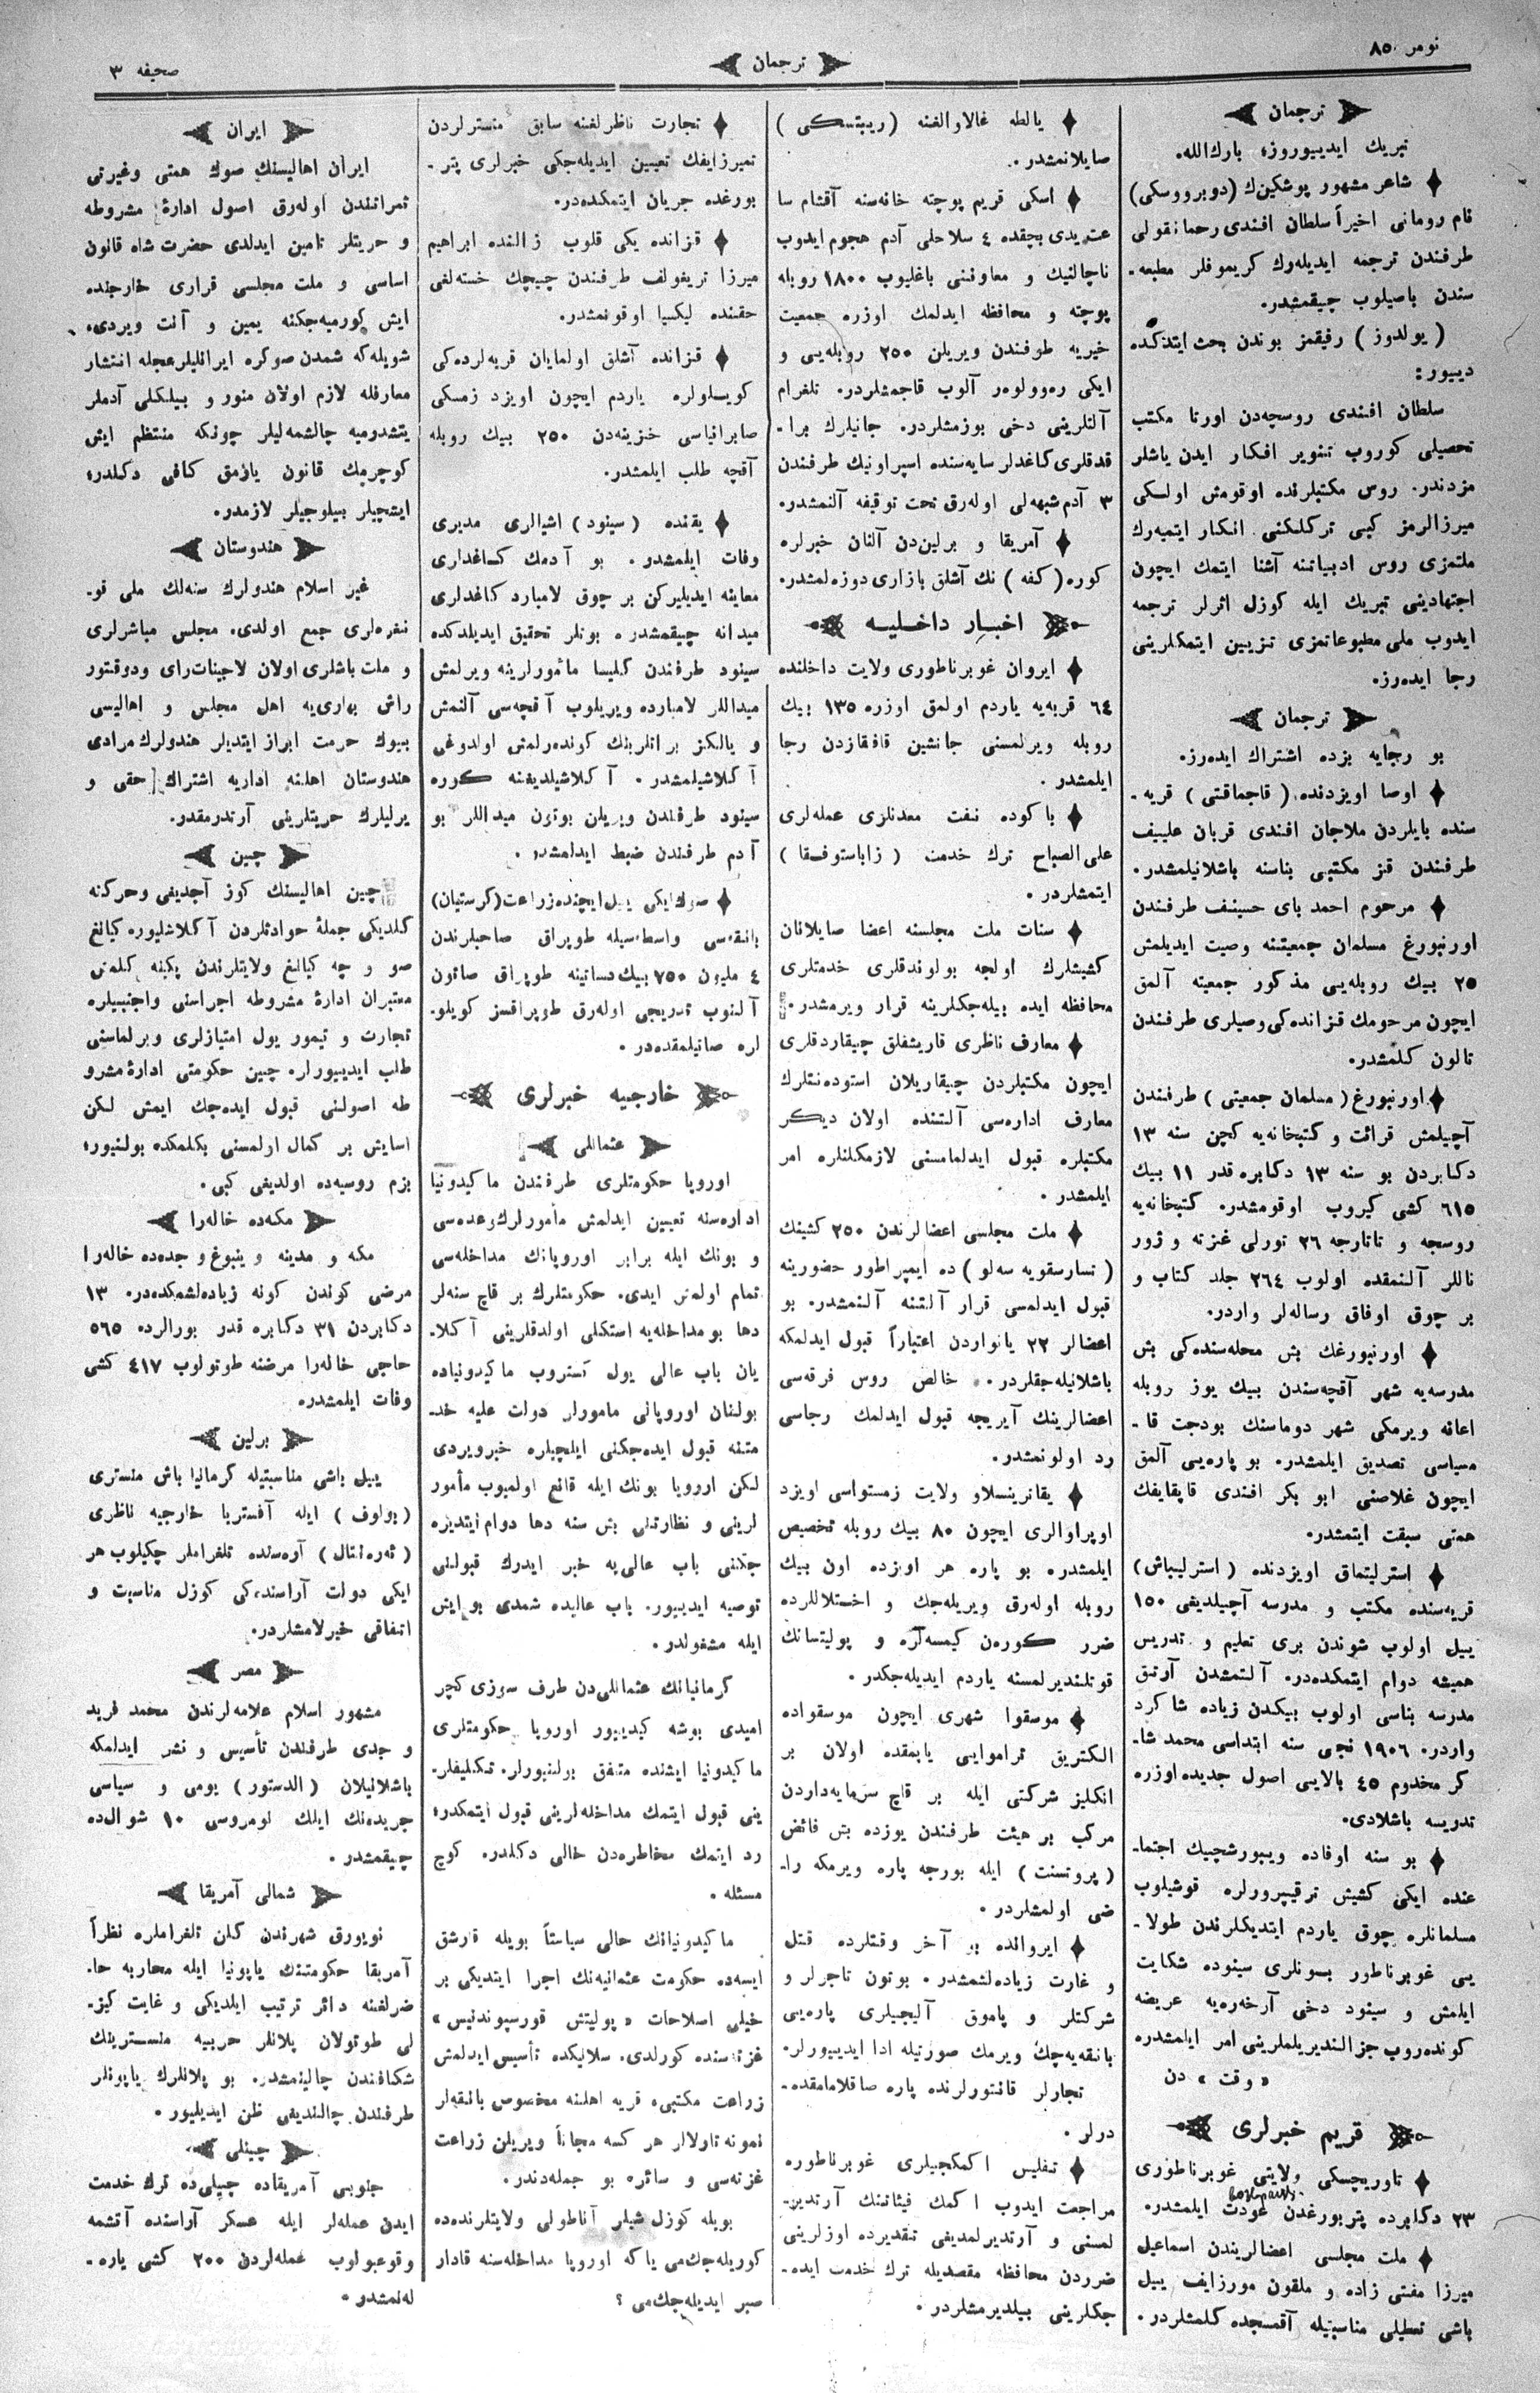 نومر ٨٥
ترجمان
صحیفه ٣
ترجمان
تبریك ایدییوروز، بارك‌الله.
شاعر مشهور پوشكین‌ك (دوبرووسكی)
نام رومانی اخیراً سلطان افندی رحمانقولی
طرفندن ترجمه ایدیله‌رك كریموفلر مطبعه‌ـ
سندن باصیلوب چیقمشدر.
( یولدوز ) رفیقمز بوندن بحث ایتدكده
دییور:
سلطان افندی روسچه‌دن اورتا مكتب
تحصیلی كوروب تنویر افكار ایدن یاشلر
مزدندر. روس مكتبلرنده اوقومش اولسكی
میرزالرمز كبی تركلكنی انكار ایتمیه‌رك
ملتمزی روس ادبیاتنه آشنا ایتمك ایچون
اجتهادینی تبریك ایله كوزل اثرلر ترجمه
ایدوب ملی مطبوعاتمزی تزیین ایتمكلرینی
رجا ایده‌رز.
ترجمان
بو رجایه بزده اشتراك ایده‌رز.
اوصا اویزدنده ( قاجماقتی ) قریه‌ـ
سنده بایلردن ملاجان افندی قربان علییف
طرفندن قز مكتبی بناسنه باشلانیلمشدر.
مرحوم احمد بای حسینف طرفندن
اورنبورغ مسلمان جمعیتنه وصیت ایدیلمش
٢٥ بیك روبله‌یی مذكور جمعیته آلمق
ایچون مرحومك قزانده‌كی وصیلری طرفندن
تالون كلمشدر.
اورنبورغ ( مسلمان جمعیتی ) طرفندن
آچیلمش قرائت و كتبخانه‌یه كچن سنه ١٣
دكابردن بو سنه ١٣ دكابره قدر ١١ بیك
٦١٥ كشی كیروب اوقومشدر. كتبخانه‌یه
روسجه و تاتارجه ٢٦ تورلی غزته و ژور
ناللر آلنمقده اولوب ٢٦٤ جلد كتاب و
بر چوق اوفاق رساله‌لر واردر.
اورنبورغك بش محله‌سنده‌كی بش
مدرسه‌یه شهر آقچه‌سندن بیك یوز روبله
اعانه ویرمكی شهر دوماسنك بودجت قا ـ
میسیاسی تصدیق ایلمشدر. بو پاره‌یی آلمق
ایچون غلاصنی ابو بكر افندی قاپقایفك
همتی سبقت ایتمشدر.
استرلیتماق اویزدنده ( استرلیباش )
قریه‌سنده مكتب و مدرسه آچیلدیغی ١٥٠
ییل اولوب شوندن بری تعلیم و تدریس
همیشه دوام ایتمكده‌در. آلتمشدن آرتق
مدرسه بناسی اولوب بیكدن زیاده شاكرد
واردر. ١٩٠٦ نجی سنه ابتداسی محمد شا ـ
كر مخدوم ٤٥ بالایی اصول جدیده اوزره
تدریسه باشلادی.
بو سنه اوفاده ویبورشچیك اجتما ـ
عنده ایكی كشیش ترقیپرورلره قوشیلوب
مسلمانلره چوق یاردم ایتدیكلرندن طولا ـ
یی غوبرناطور بونلری سینوده شكایت
ایلمش و سینود دخی آرخه‌ره‌یه عریضه
كونده‌روب جزالندیریلملرینی امر ایلمشدر.
« وقت » دن
قریم خبرلری
تاوریچسكی ولایتی غوبرناطوری
٢٣ دكابرده پتربورغدن عودت ایلمشدر.
ملت مجلسی اعضالریندن اسماعیل
میرزا مفتی زاده و ملقون مورزایف ییل
باشی تعطیلی مناسبتیله آقمسجده كلمشلردر.
یالطه غالاوالغنه ( ریبیتسكی )
صایلانمشدر.
اسكی قریم پوچته خانه‌سنه آقشام سا
عت یدی بچقده ٤ سلاحلی آدم هجوم ایدوب
ناچالنیك و معاوننی باغلیوب ١٨٠٠ روبله
پوچته و محافظه ایدلمك اوزره جمعیت
خیریه طرفندن ویریلن ٢٥٠ روبله‌یی و
ایكی ره‌وولوه‌ر آلوب قاچمشلردر. تلغرام
آلتلرینی دخی بوزمشلردر. جانیلرك براـ
قدقلری كاغدلر سایه‌سنده اسپراونیك طرفندن
٣ آدم شبهه‌لی اوله‌رق تحت توقیفه آلنمشدر.
آمریقا و برلین‌دن آلنان خبرلره
كوره ( كفه ) نك آشلق بازاری دوزه‌لمشدر.
اخبار داخلیه
ایروان غوبرناطوری ولایت داخلنده
٦٤ قریه‌یه یاردم اولمق اوزره ١٣٥ بیك
روبله ویرلمسنی جانشین قافقازدن رجا
ایلمشدر.
باكوده نفت معدنلری عمله‌لری
علی الصباح ترك خدمت ( زاباستوفقا )
ایتمشلردر.
سنات ملت مجلسنه اعضا صایلانان
كشیشلرك اولجه بولوندقلری خدمتلری
محافظه ایده بیله‌جكلرینه قرار ویرمشدر.
معارف ناظری قاریشقلق چیقاردقلری
ایچون مكتبلردن چیقاریلان استوده‌نتلرك
معارف اداره‌سی آلتنده اولان دیكر
مكتبلره قبول ایدلمامسنی لازمكلنلره امر
ایلمشدر.
ملت مجلسی اعضالرندن ٢٥٠ كشینك
( تسارسقویه سه‌لو ) ده ایمپراطور حضورینه
قبول ایدلمسی قرار آلتنه آلنمشدر. بو
اعضالر ٢٢ یانواردن اعتباراً قبول ایدلمكه
باشلانیله‌جقلردر. خالص روس فرقه‌سی
اعضالرینك آیریجه قبول ایدلمك رجاسی
رد اولونمشدر.
یقاترینسلاو ولایت زمستواسی اویزد
اوپراوالری ایچون ٨٠ بیك روبله تخصیص
ایلمشدر. بو پاره هر اویزده اون بیك
روبله اوله‌رق ویریله‌جك و اختلاللرده
ضرر كوره‌ن كیمسه‌لره و پولیتسانك
قوتلندیرلمسنه یاردم ایدیله‌جكدر.
موسقوا شهری ایچون موسقواده
الكتریق تراموایی یاپمقده اولان بر
انكلیز شركتی ایله بر قاچ سرمایه‌داردن
مركب بر هیئت طرفندن یوزده بش فائض
( پروتسنت ) ایله بورجه پاره ویرمكه راـ
ضی اولمشلردر.
ایروانده بو آخر وقتلرده قتل
و غارت زیاده‌لشمشدر. بوتون تاجرلر و
شركتلر و پاموق آلیجیلری پاره‌یی
بانقه‌یه چك ویرمك صورتیله ادا ایدییورلر.
تجارلر قانتورلرنده پاره صاقلامامقده‌ـ
درلر.
تفلیس اكمكجیلری غوبرناطوره
مراجعت ایدوب اكمك فیئاتنك آرتدیرـ
لمسنی و آرتدیرلمدیغی تقدیرده اوزلرینی
ضرردن محافظه مقصدیله ترك خدمت ایده‌ـ
جكلرینی بیلدیرمشلردر.
تجارت ناظرلغنه سابق منسترلردن
تمیرزایفك تعیین ایدیله‌جكی خبرلری پترـ
بورغده جریان ایتمكده‌در.
قزانده یكی قلوب زالنده ابراهیم
میرزا تریغولف طرفندن چیچك خسته‌لغی
حقنده لیكسیا اوقونمشدر.
قزانده آشلق اولمایان قریه‌لرده‌كی
كویسلولره یاردم ایچون اویزد زمسكی
صابرانیاسی خزینه‌دن ٢٥٠ بیك روبله
آقچه طلب ایلمشدر.
یقنده ( سینود ) اشیالری مدیری
وفات ایلمشدر. بو آدمك كاغدلری
معاینه ایدیلیركن بر چوق لامبارد كاغدلری
میدانه چیقمشدر. بونلر تحقیق ایدیلدكده
سینود طرفندن كلیسا مأمورلرینه ویرلمش
میداللر لامبارده ویریلوب آقچه‌سی آلنمش
و یالكز براتلرینك كونده‌رلمش اولدوغی
آكلاشیلمشدر. آكلاشیلدیغنه كوره
سینود طرفندن ویریلن بوتون میداللر بو
آدم طرفندن ضبط ایدلمشدر.
صوك ایكی ییل ایچنده زراعت (كرستیان)
بانقه‌سی واسطه‌سیله طوپراق صاحبلرندن
٤ ملیون ٧٥٠ بیك دساتینه طوپراق صاتون
آلنوب تدریجی اوله‌رق طوپراقسز كویلوـ
لره صاتیلمقده‌در.
خارجیه خبرلری
عثمانلی
اوروپا حكومتلری طرفندن ماكیدونیا
اداره‌سنه تعیین ایدلمش مأمورلرك وعده‌سی
و بونك ایله برابر اوروپانك مداخله‌سی
تمام اولمش ایدی. حكومتلرك بر قاچ سنه‌لر
دها بو مداخله‌یه استكلی اولدقلرینی آكلاـ
یان باب عالی یول كستروب ماكیدونیاده
بولنان اوروپائی مامورلر دولت علیه خدـ
متنه قبول ایده‌جكنی ایلچیلره خبرویردی
لكن اوروپا بونك ایله قانع اولمیوب مأمور
لرینی و نظارتنی بش سنه دها دوام ایتدیره
جكنی باب عالی‌یه خبر ایدرك قبولنی
توصیه ایدییور. باب عالیده شمدی بو ایش
ایله مشغولدر.
كرمانیانك عثمانلی‌دن طرف سوزی كچر
امیدی بوشه كیدییور اوروپا حكومتلری
ماكیدونیا ایشنده متفق بولنیورلر. تكلیفلرـ
ینی قبول ایتمك مداخله‌لرینی قبول ایتمكدر،
رد ایتمك مخاطره‌دن خالی دكلدر. كوچ
مسئله.
ماكیدونیانك حالی سیاستاً بویله قارشق
ایسه‌ده حكومت عثمانیه‌نك اجرا ایتدیكی بر
خیلی اصلاحات «پولیتش قورسپوندنس»
غزته‌سنده كورلدی. سلانیكده تأسیس ایدلمش
زراعت مكتبی، قریه اهلنه مخصوص بانقه‌لر
نمونه تاولالر هر كسه مجاناً ویریلن زراعت
غزته‌سی و سائره بو جمله‌دندر.
بویله كوزل شیلر آناطولی ولایتلرنده‌ده
كوریله‌جك‌می یاكه اوروپا مداخله‌سنه قادار
صبر ایدیله‌جك‌می ؟
ایران
ایران اهالیسنك صوك همتی وغیرتی
ثمراتندن اوله‌رق اصول ادارهٔ مشروطه
و حریتلر تامین ایدلدی حضرت شاه قانون
اساسی و ملت مجلسی قراری خارجنده
ایش كورمیه‌جكنه یمین و آنت ویردی،
شویله‌كه شمدن صوكره ایرانلیلر عجله انتشار
معارفله لازم اولان منور و بیلكلی آدملر
یتشدرمیه چالشمه‌لیلر چونكه منتظم ایش
كوچرمك قانون یازمق كافی دكلدر،
ایشچیلر بیلوجیلر لازمدر.
هندوستان
غیر اسلام هندولرك سنه‌لك ملی قوـ
نغره‌لری جمع اولدی. مجلس مباشرلری
و ملت باشلری اولان لاجینات‌رای ودوقتور
راش بهاری‌یه اهل مجلس و اهالیسی
بیوك حرمت ابراز ایتدیلر هندولرك مرادی
هندوستان اهلنه اداریه اشتراك حقی و
یرلیلرك حریتلرینی آرتدرمقدر.
چین
چین اهالیسنك كوز آچدیغی وحركته
كلدیكی جملهٔ حوادثلردن آكلاشلیور. كیانغ
صو و چه كیانغ ولایتلرندن پكینه كلمش
معتبران ادارهٔ مشروطه اجراسنی واجنبیلره
تجارت و تیمور یول امتیازلری ویرلماسنی
طلب ایدییورلر. چین حكومتی ادارهٔ مشرو
طه اصولنی قبول ایده‌جك ایمش لكن
اسایش بر كمال اولمسنی بكلمكده بولنیور،
بزم روسیه‌ده اولدیغی كبی.
مكه‌ده خاله‌را
مكه و مدینه و ینبوغ و جده‌ده خاله‌را
مرضی كوندن كونه زیاده‌لشمكده‌در. ١٣
دكابردن ٣١ دكابره قدر بورالرده ٥٦٥
حاجی خاله‌را مرضنه طوتولوب ٤١٧ كشی
وفات ایلمشدر.
برلین
ییل باشی مناسبتیله گرمانیا باش منستری
( بولوف ) ایله آفستریا خارجیه ناظری
( ئه‌ره‌نتال ) آره‌سنده تلغراملر چكیلوب هر
ایكی دولت آراسنده‌كی كوزل مناسبت و
اتفاقی خیرلامشلردر.
مصر
مشهور اسلام علامه‌لرندن محمد فرید
و جدی طرفندن تأسیس و نشر ایدلمكه
باشلانیلان (الدستور) یومی و سیاسی
جریده‌نك ایلك نومروسی ١٠ شوال‌ده
چیقمشدر.
شمالی آمریقا
نویورق شهرندن كلن تلغراملره نظراً
آمریقا حكومتنك یاپونیا ایله محاربه حاـ
ضرلغنه دائر ترتیب ایلدیكی و غایت كیزـ
لی طوتولان پلانلر حربیه منسترینك
شكافندن چالینمشدر. بو پلانلرك یاپونلر
طرفندن چالندیغی ظن ایدیلیور.
چیلی
جنوبی آمریقاده چیلی‌ده ترك خدمت
ایدن عمله‌لر ایله عسكر آراسنده آتشمه
وقوعبولوب عمله‌لردن ٢٠٠ كشی یاره‌ـ
له‌نمشدر.